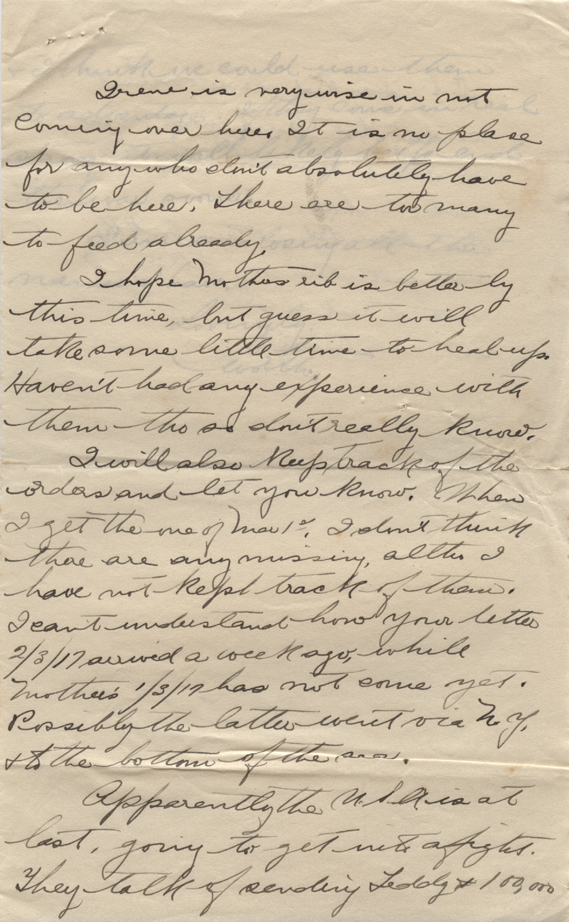 Irene is very wise in not
coming over here. It is no place
for any who don't absolutely have
to be here. There are too many
to feed already.
I hope Mothers rib is better by
this time, but guess it will
take some little time to heal up.
Haven't had any experience with
them tho so don't really know.
I will also keep track of the
orders and let you know. When
I get the one of Mar 1st. I don't think
there are any missing, altho I
have not kept track of them.
I can't understand how your letter
2/3/17 arrived a week ago, while
Mother's 1/3/17 has not come yet.
Possibly the latter went via N.Y.
& to the bottom of the sea.
Apparently the U.S.A. is at
last, going to get into a fight.
They talk of sending Teddy & 100,000